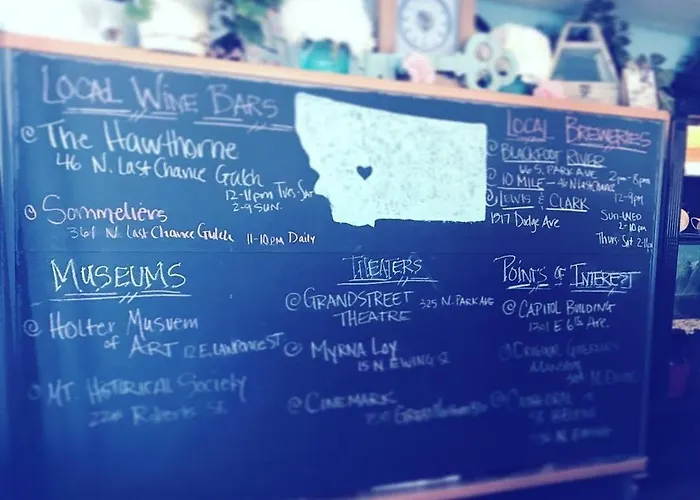 LOCAL WINE BARS
@ The Hawthorne
46 N. Last Chance Gulch
12-11pm Tues-Sat
2-9 SUN.
@ Sommeliers
361 N. Last Chance Gulch 11-10pm Daily
LOCAL BREWERIES
BLACKFOOT RIVER
66 S. PARK AVE 2pm-8pm
@ 10 MILE - 48 N Last Chance
12-9pm
@ LEWIS & CLARK
1517 Dodge Ave
Sun-Wed
2-10pm
Thurs-Sat
MUSEUMS
@ Holter Musuem
of ART 12 E. Lawrence ST
@ MT. Historical Society
Roberts St
THEATERS
@ GRANDSTREET 325 N. PARK AVE
THEATRE
@ MYRNA LOY
15 N. EWING St
@ CINEMARK
POINTS OF INTEREST
@ CAPITOL BUILDING
1301 E 6th Ave.
@ Original Governors
@ CATHEDRAL of
ST. HELENA